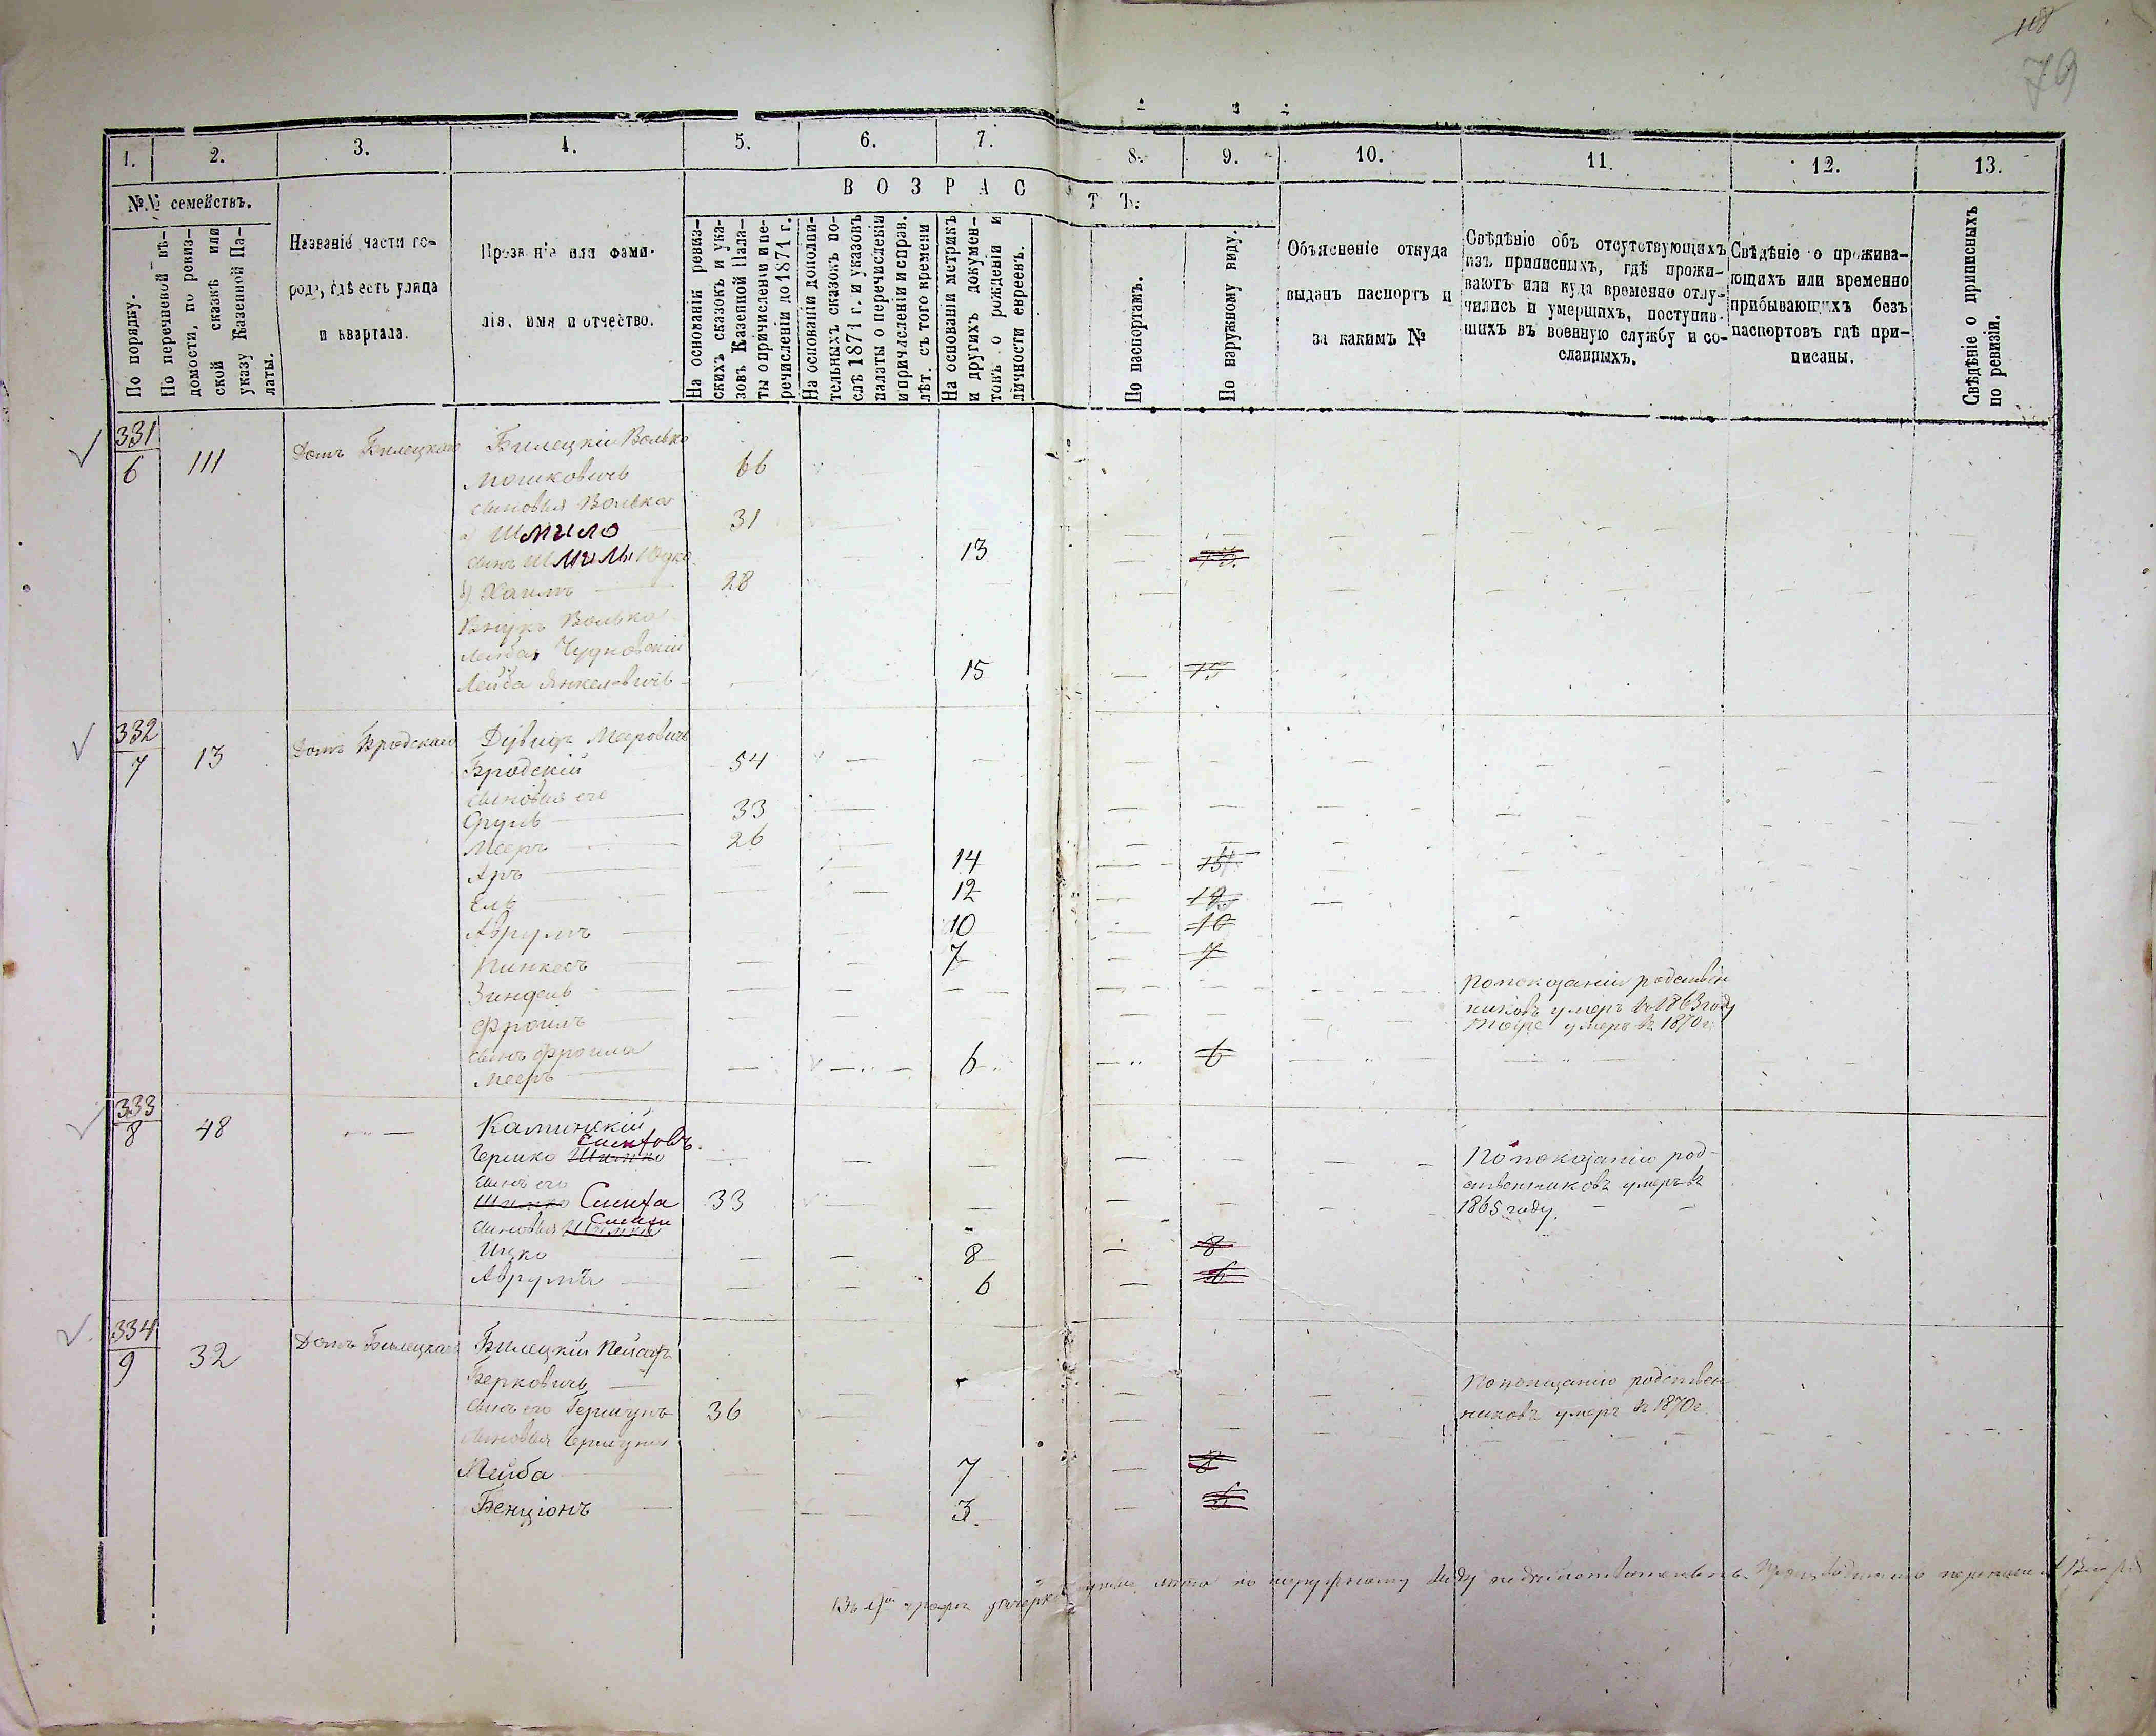 118
79
1.
2.
3.
4.
5.
6.
7.
8.
9.
10.
11.
12.
13.
№№ семействъ.
По порядку.
По перечневой вѣ-
домости, по ревиз-
ской сказкѣ или
указу Казенной Па-
латы.
Названіе части го-
рода, гдѣ есть улица
и квартала.
Прозваніе или фами-
лія, имя и отчество.
ВОЗРАСТЪ.
На основаніи ревиз-
скихъ сказокъ и ука-
зовъ Казенной Пала-
ты о причисленіи и пе-
речисленіи до 1871 г.
На основаніи дополни-
тельныхъ сказокъ по-
слѣ 1871 г. и указовъ
палаты о перечисленіи
и причисленіи и справ.
лѣт. съ того времени
На основаніи метрикъ
и другихъ докумен-
товъ о рожденіи и
личности евреевъ.
По паспортамъ.
По наружному виду.
Объясненіе откуда
выданъ паспортъ и
за какимъ №
Свѣдѣніе объ отсутствующихъ
изъ приписныхъ, гдѣ прожи-
ваютъ или куда временно отлу-
чились и умершихъ, поступив-
шихъ въ военную службу и со-
сланныхъ.
Свѣдѣніе о прожива-
ющихъ или временно
прибывающихъ безъ
паспортовъ гдѣ при-
писаны.
Свѣдѣніе о приписныхъ
по ревизіи.
331
6 111 Домъ Билецкаго Билецкій Волько
Мошковичъ 66
сыновья Волька
а) Шмило 31
сынъ Шмилы Юдко 13 13
б) Хаимъ 28
Внукъ Волька
Лейба Чудновскій
Лейба Янкелевичъ 15 15
332
7 13 Домъ Бродскаго Дувидъ Меровичъ
Бродскій 54
сыновья его
Сруль 33
Мееръ 26
Аръ 14 15
Ель 12 12
Аврумъ 10 10
Пинкесъ 7 7
Зиндель По показанію родствен
никовъ умеръ въ 1863 году
Фроимъ тоже умеръ въ 1870 г.
сынъ Фроима
Мееръ 6 6
333
8 48 Каминскій
Симховъ
Гершко Шимко По показанію род-
ственниковъ умеръ въ
1865 году.
сынъ его
Шимко Симха 33
Симхи
сыновья Шимка
Ицко 8 8
Аврумъ 6 6
334
9 32 Домъ Билецкаго Билецкій Пейсахъ
Берковичъ По показанію родствен
никовъ умеръ въ 1870 г.
сынъ его Гершунъ 36
сыновья Гершуна
Лейба 7 8
Бенціонъ 3
Въ 9й графѣ лѣта по наружному виду